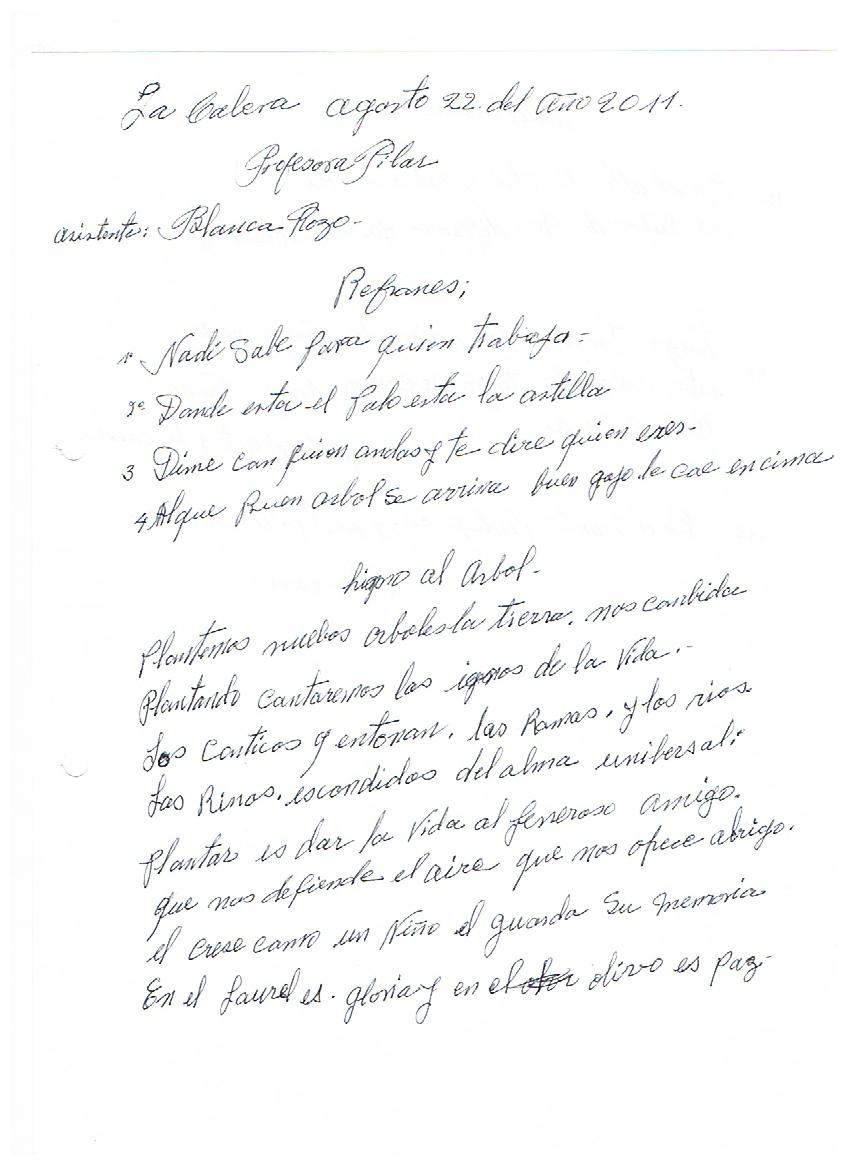 La Calera agosto 22. del Año 2011.
Profesora Pilar
asistente: Blanca Rozo-
Refranes;
1º Nadi Sabe para quien trabaja=
2º Donde esta el palo esta la astilla
3 Dime con quien andas y te dire quien eres-
4 Alque Buen arbol se arrima buen gajo le cae encima
higno al Arbol-
Plantemos nuebos arboles la tierra. nos conbida
Plantando cantaremos los ignos de la Vida.-
Los canticos q entonan. las Ramas. y los rios.
Las Rimas. escondidos del alma unibersal:
Plantar es dar la vida al generoso amigo.
que nos defiende el aire que nos ofece abrigo.
el crese como un Niño el guarda Su memoria
En el Laurel es. gloria y en el olivo es paz-